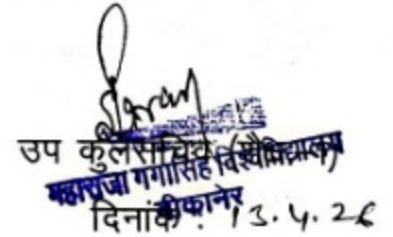 उप कुलसचिव
महाराजा गंगासिंह विश्वविद्यालय
बीकानेर
दिनांक : 13.4.26